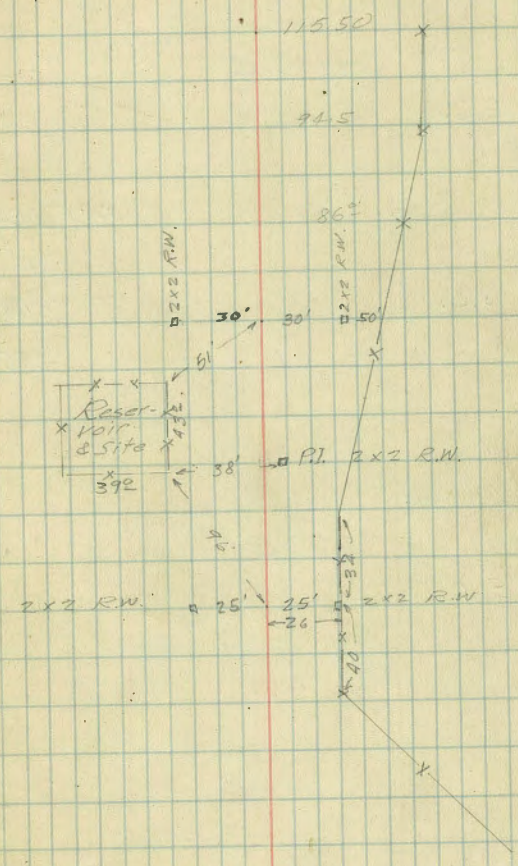 115.50
94.5
86⁰
2x2 R.W.
2x2 R.W.
30' 30' 50'
51'
Reser-
voir
& Site
43²
39²
38'
P.I. 2x2 R.W.
96.
38
2x2 R.W. 25' 25' 2x2 R.W
26
40